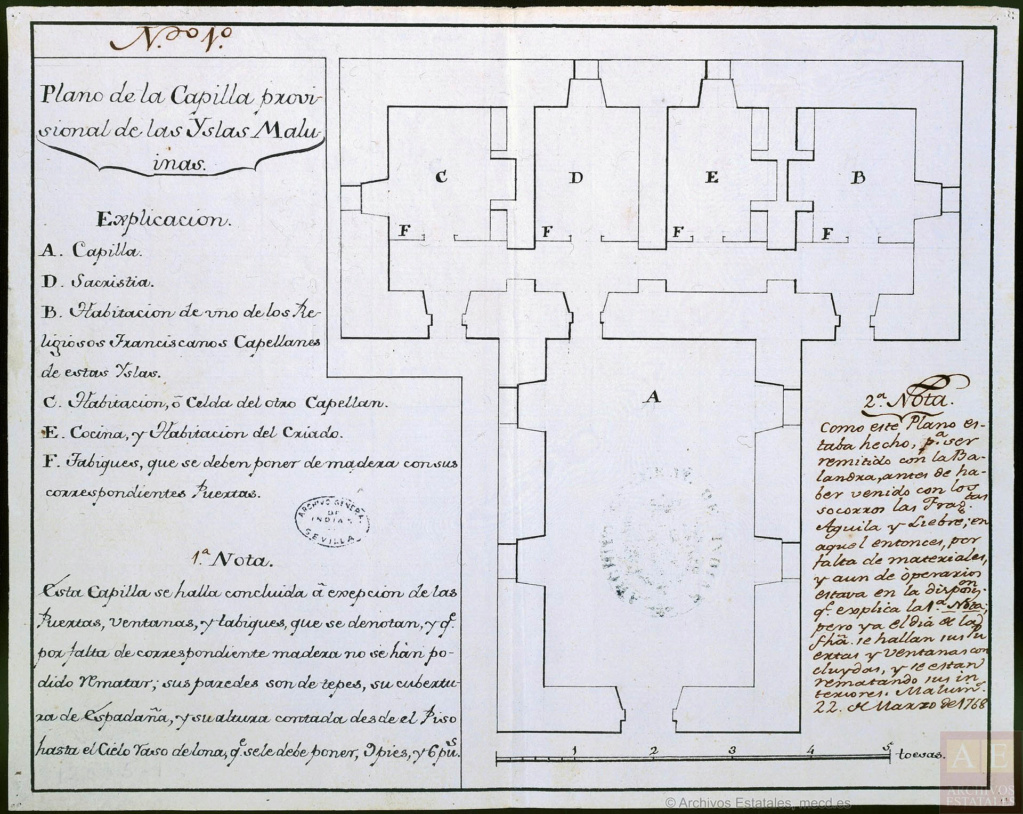 Plano de la Capilla provi-
sional de las Yslas Malu-
inas.
Explicacion.
A. Capilla.
D. Sacristia.
B. Habitacion de vno de los Re-
ligiosos Franciscanos Capellanes
de estas Yslas.
C. Habitacion, ò Celda del otro Capellan.
E. Cocina, y Habitacion del Criado.
F. Tabiques, que se deben poner de madera con sus
correspondientes Puertas.
ARCHIVO GENERAL
DE
INDIAS
SEVILLA
1.ª Nota.
Esta Capilla se halla concluida â exepcion de las
Puertas, ventanas, y tabiques, que se denotan, y q.e
por falta de correspondiente madera no se hàn po-
dido rematar; sus paredes son de tepes, su cubertu-
ra de Espadaña, y su altura contada desde el Piso
hasta el Cielo raso de lona, q.e se le debe poner, 9 pies, y 6 pu.s
C
D
E
B
F
F
F
F
A
2.ª Nota.
Como este Plano es-
taba hecho, p.ª ser
remitido con la Ba-
landra, antes de ha-
ber venido con los
socorros las Frag.tas
Aguila y Liebre; en
aquel entonces, por
falta de materiales,
y aun de operarios
estava en la dispon.on
q.e explica la 1.ª Nota;
pero ya el dia de la
fhã. se hallan sus Pu
ertas y ventanas con
cluydas, y se estan
rematando sus in
teriores. Maluin.s
22. de Marzo de 1768
1 2 3 4 5 toesas.
© Archivos Estatales, mecd.es
A E
ARCHIVOS
ESTATALES